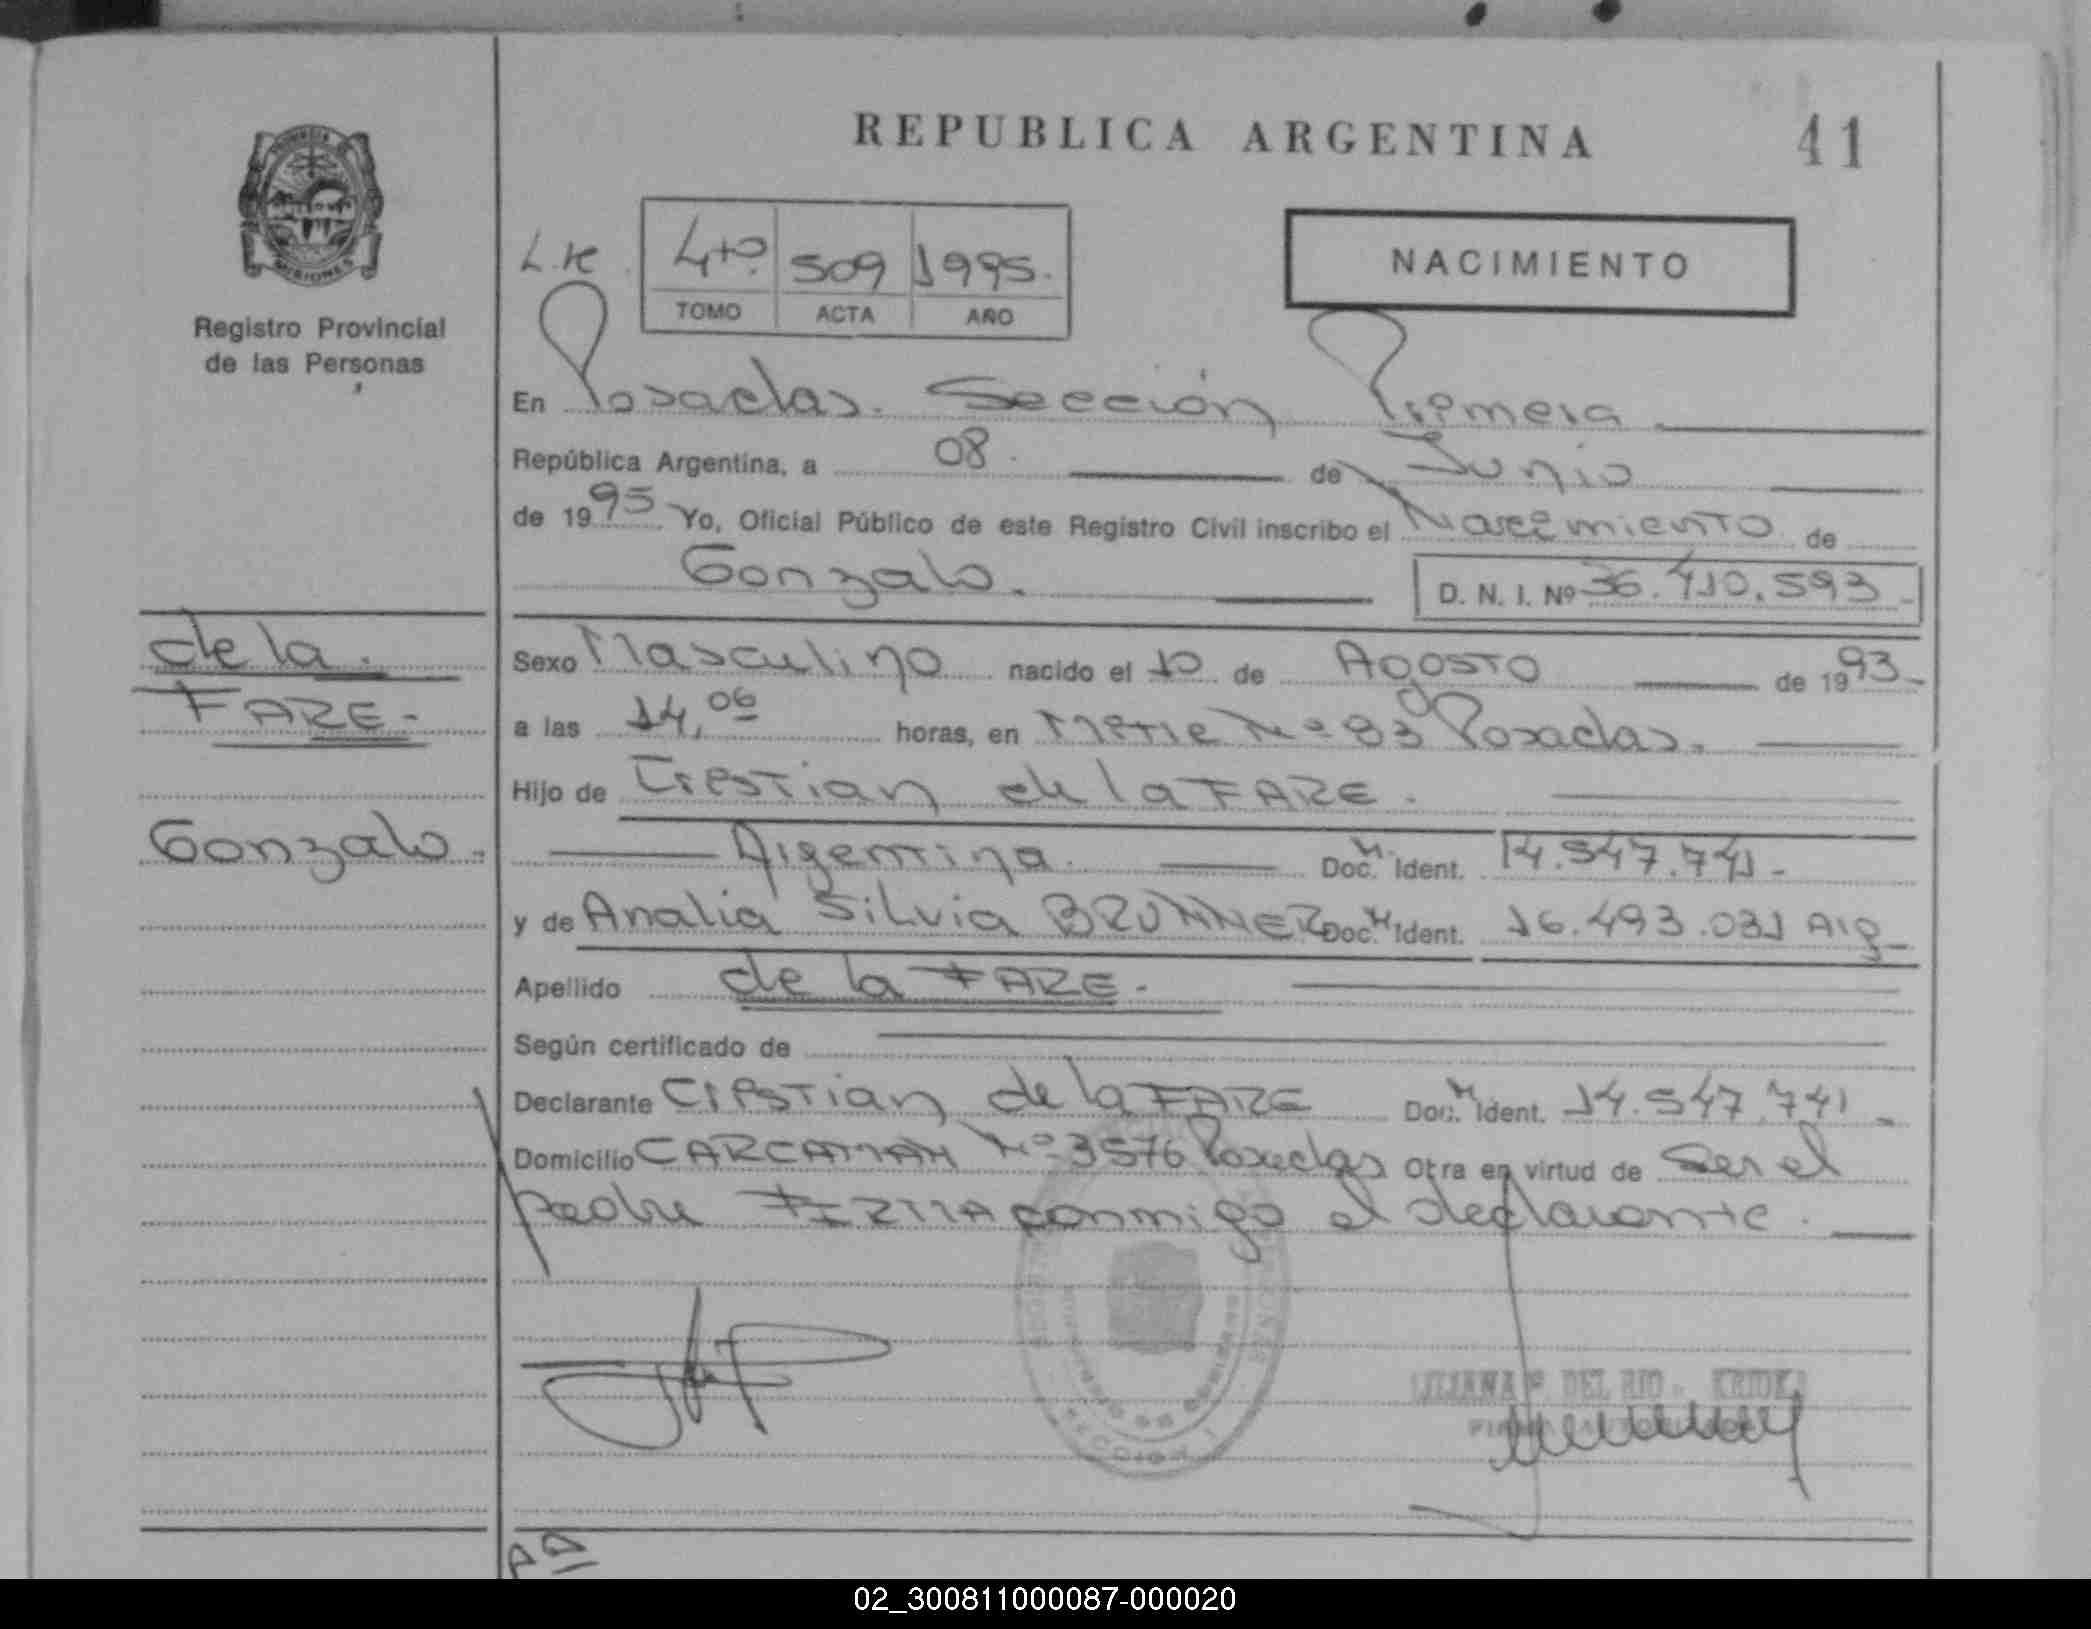 REPUBLICA ARGENTINA
41
MISIONES
Registro Provincial
de las Personas
4to. 509 1995.
TOMO ACTA AÑO
NACIMIENTO
En Posadas. Sección Primera
República Argentina, a 08. de Junio
de 1995 Yo, Oficial Público de este Registro Civil inscribo el Nacimiento de
Gonzalo. D. N. I. Nº 36.410.593
de la
FARE.
Gonzalo.
Sexo Masculino nacido el 10 de Agosto de 1993
a las 14,06 horas, en Nº 83 Posadas.
Hijo de Cristian de la FARE.
Argentina. Doc. Ident. 14.547.741
y de Analia Silvia BRUNNER Doc. Ident. 16.493.031 Arg
Apellido de la FARE.
Según certificado de
Declarante Cristian de la FARE Doc. Ident. 14.547.741
Domicilio Nº 3576 Posadas Otra en virtud de Ser el
padre FIRMA conmigo el declarante.
SECCION 1
LILIANA DEL RIO
02_300811000087-000020